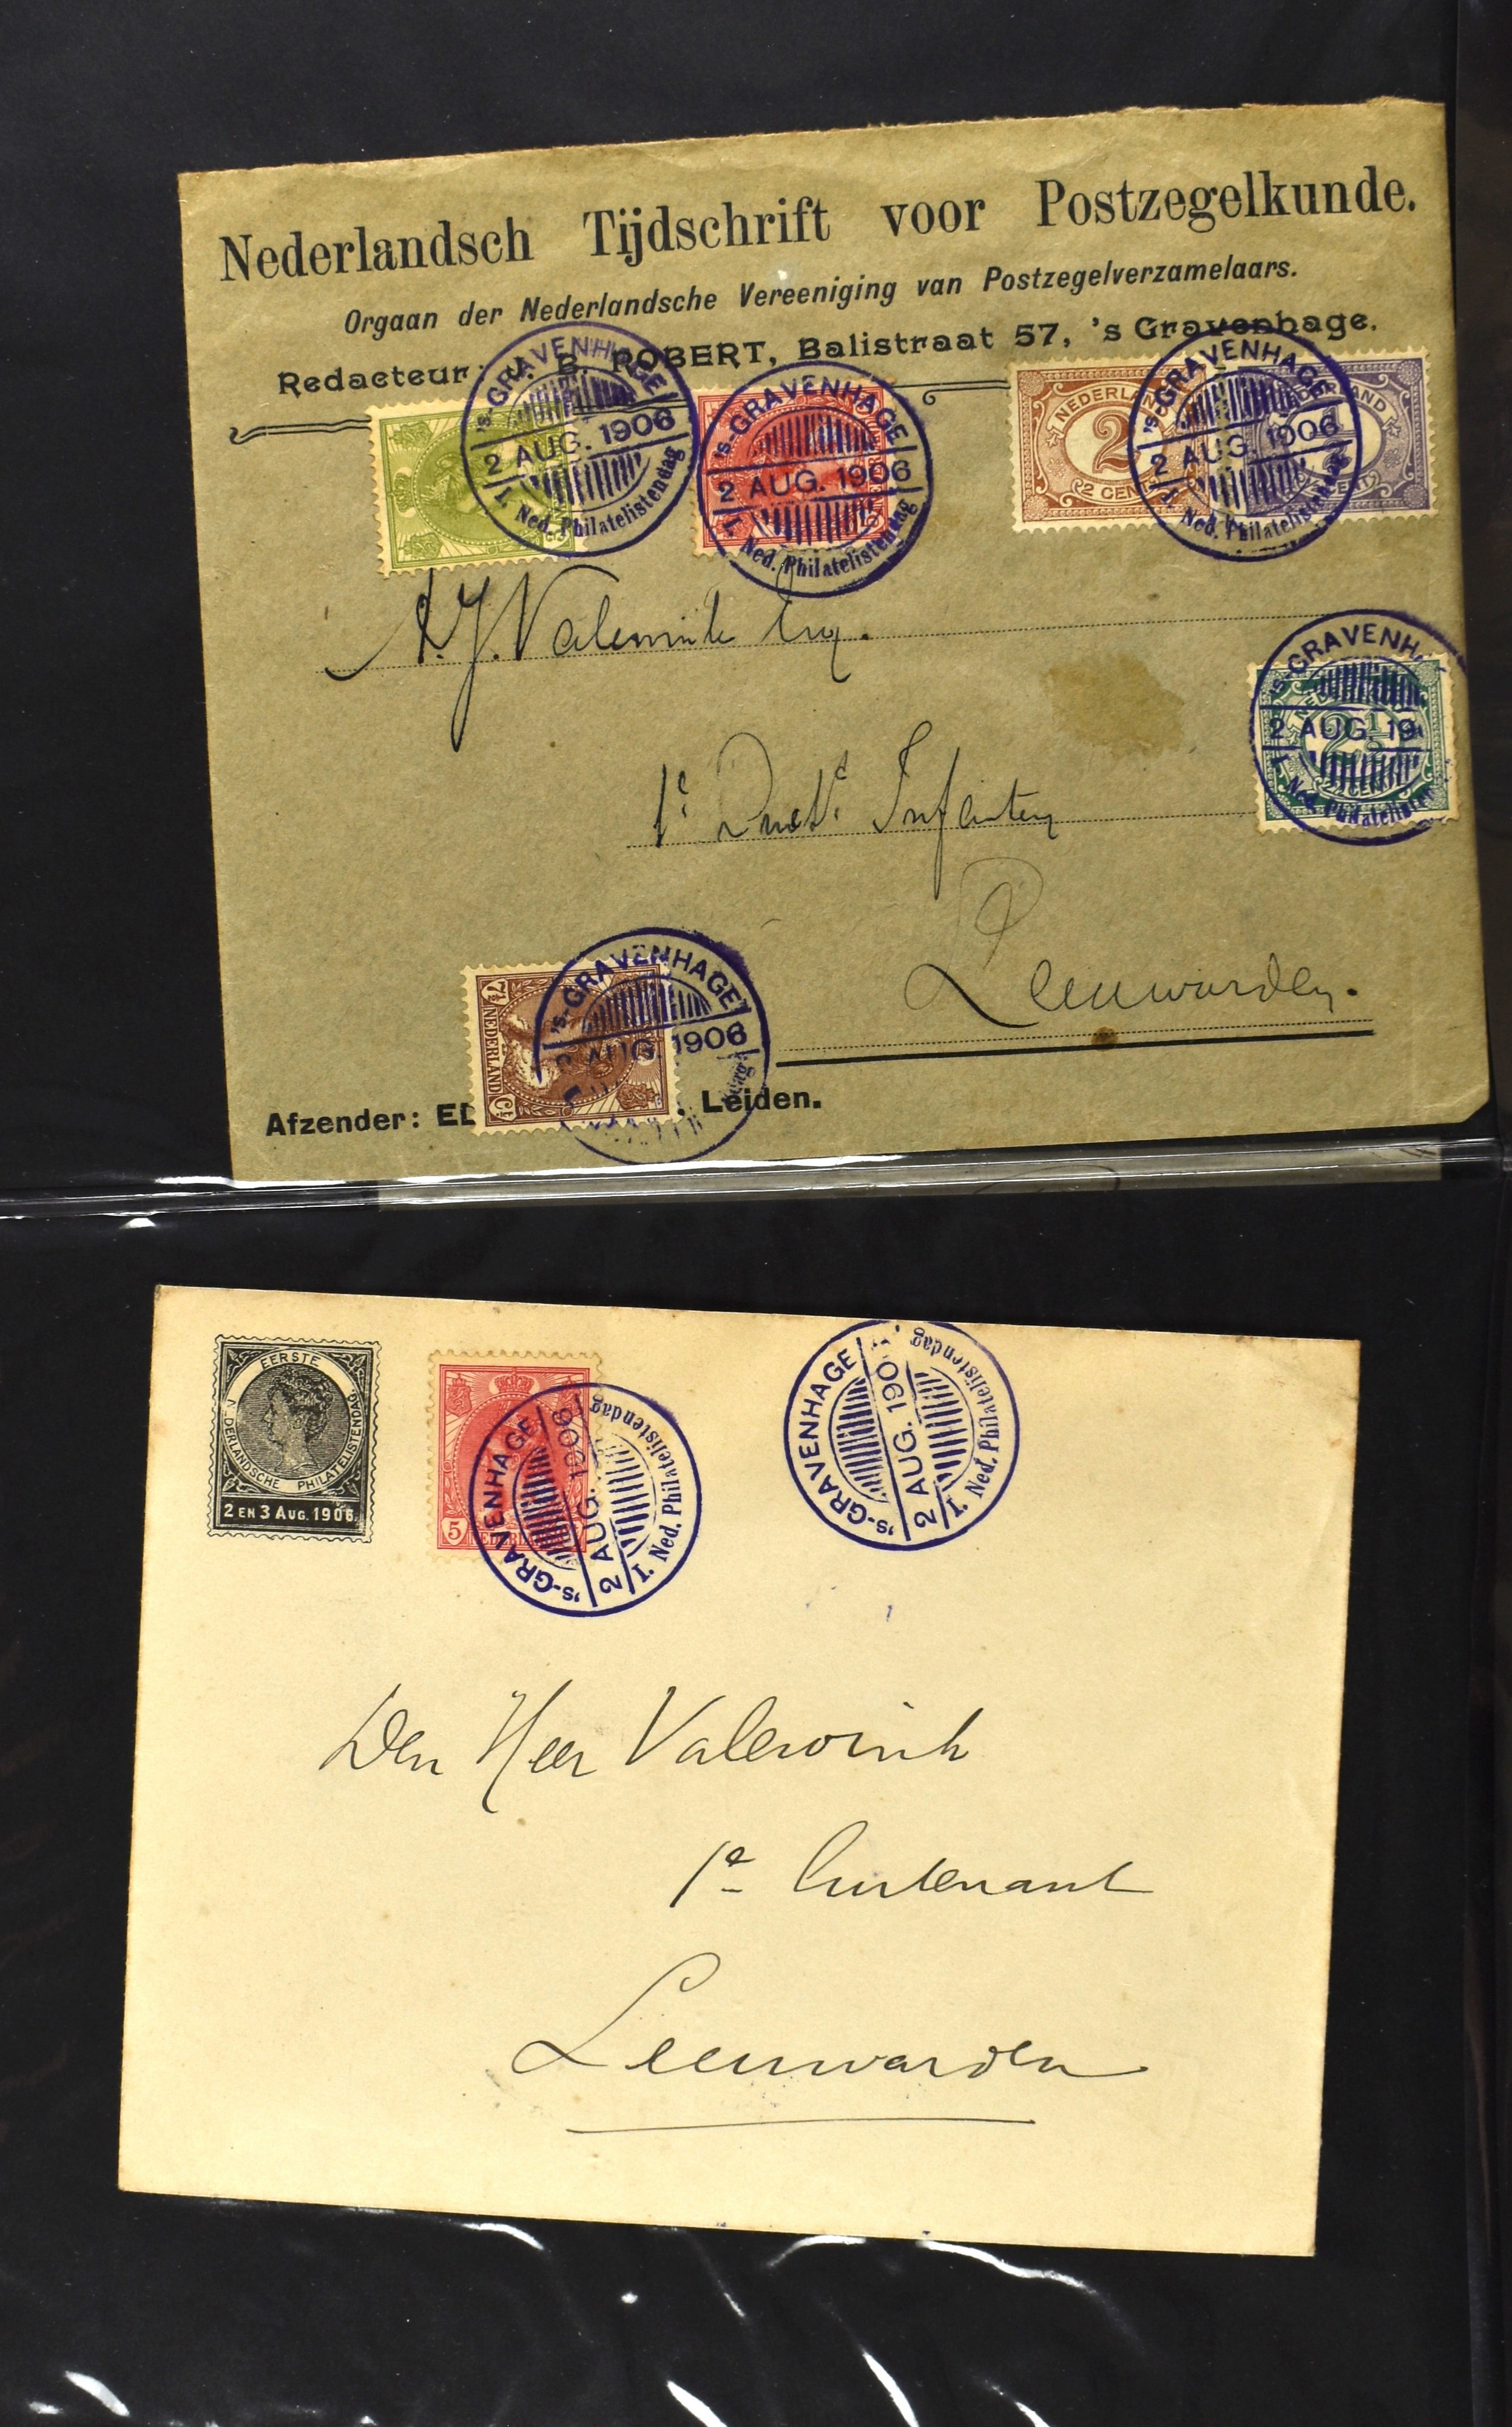 Nederlandsch Tijdschrift voor Postzegelkunde.
Orgaan der Nederlandsche Vereeniging van Postzegelverzamelaars.
Redacteur: J. B. ROBERT, Balistraat 57, 's Gravenhage.
's-GRAVENHAGE
2 AUG. 1906
I. Ned. Philatelistendag
's-GRAVENHAGE
2 AUG. 1906
I. Ned. Philatelistendag
NEDERL
2
2 CEN
's-GRAVENHAGE
2 AUG. 1906
I. Ned. Philatelistendag
LAND
A.J. Valewink Esq.
's-GRAVENH
2 AUG. 19
I. Ned. Philatelisten
2½
1e Luit. Infanterie
Leeuwarden.
7½ NEDERLAND Ct
's-GRAVENHAGE
2 AUG. 1906
dag
Afzender: ED . Leiden.
EERSTE
N-DERLANDSCHE PHILATELISTENDAG.
2 EN 3 AUG. 1906.
5
NEDERL
's-GRAVENHAGE
2 AUG. 1906
I. Ned. Philatelistendag
's-GRAVENHAGE
2 AUG. 190
I. Ned. Philatelistendag
Den Heer Valewink
1e Luitenant
Leeuwarden